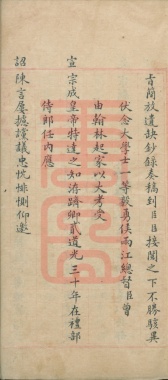 言簡放遺缺鈔錄奏稿到臣臣接閱之下不勝駭異
伏念大學士一等毅勇侯兩江總督臣曾
由翰林起家以大考受
宣宗成皇帝特達之知洊躋卿貳道光三十年在禮部
侍郎任內應
詔陳言屢攄讜議忠忱悱惻仰邀